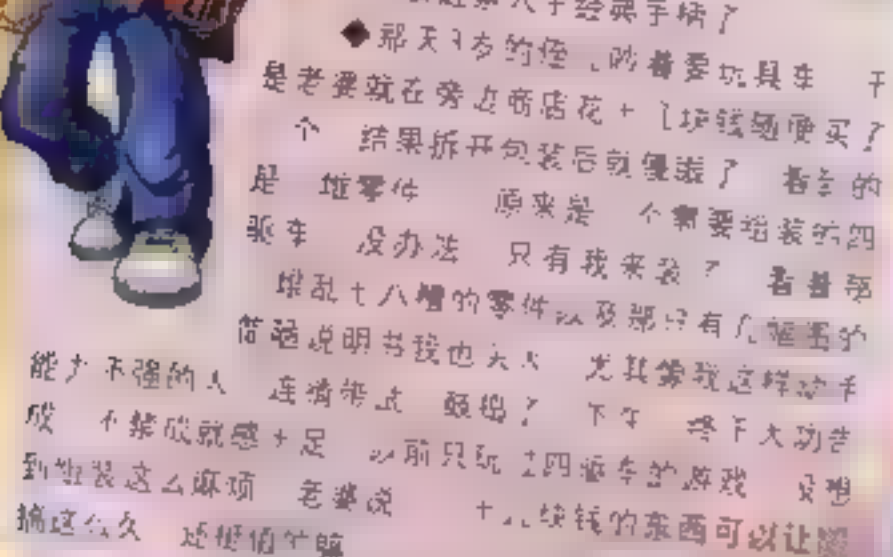 经典手柄了
◆那天 岁的侄 吵着要玩具车 于
是老婆就在旁边商店花十 块钱随便买了
个 结果拆开包装后就傻眼了 看到的
是 堆零件 原来是 个需要组装的四
驱车 没办法 只有我来装了 看着那
堆乱七八糟的零件以及那只有几 图的
简陋说明书我也头大 尤其像我这样动手
能力不强的人 连猜带试 鼓捣了 下午 终于大功告
成 不禁成就感十足 以前只玩 四驱车的游戏 没想
到组装这么麻烦 老婆说 十 块钱的东西可以让
搞这么久 还挺值